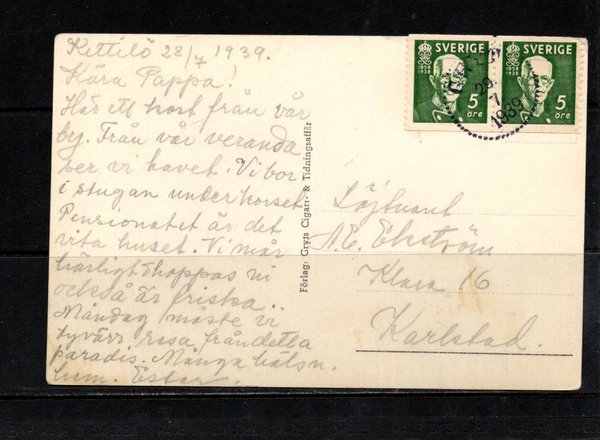 Kettilö 28/7 1939.
Kära Pappa!
Här ett kort från vår
by. Från vår veranda
ser vi havet. Vi bor
i stugan under korset.
Pensionatet är det
vita huset. Vi mår
härligt & hoppas ni
också är friska..
Måndag måste vi
tyvärr resa från detta
paradis. Många hälsn.
hem. Ester.
Förlag: Gryts Cigarr- & Tidningsaffär
SVERIGE
1858
1938
5
öre
SVERIGE
1858
1938
5
öre
29
7
1939
Löjtnant
N.E. Ekström
Klara 16
Karlstad.